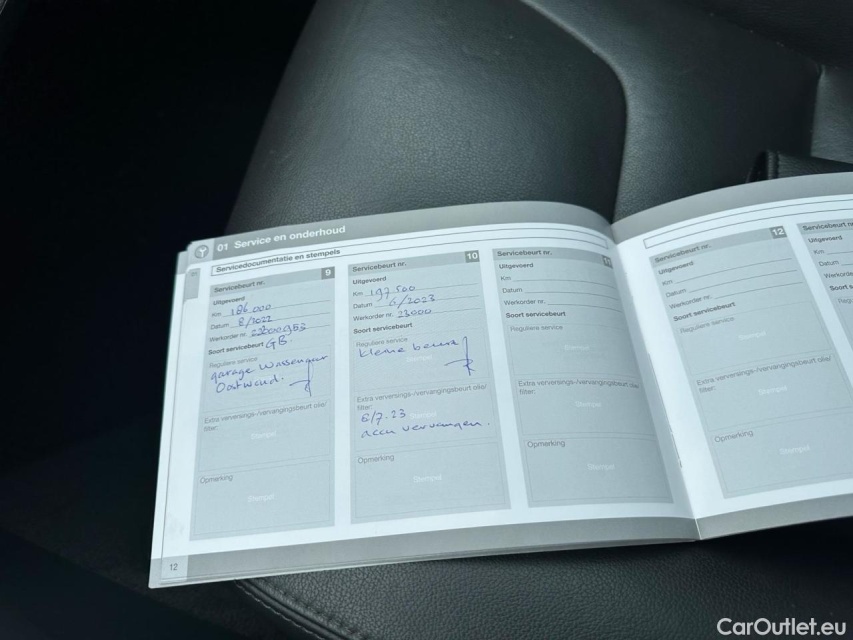 01 Service en onderhoud
Servicedocumentatie en stempels
Servicebeurt nr. 9
Uitgevoerd
Km 186.000
Datum 8/2022
Werkorder nr.
Soort servicebeurt GB.
Reguliere service
garage Wassenaar
Oostwoud.
Extra verversings-/vervangingsbeurt olie/
filter:
Stempel
Opmerking
Stempel
12
Servicebeurt nr. 10
Uitgevoerd
Km 197.500
Datum 6/2023
Werkorder nr. 23000
Soort servicebeurt
Reguliere service
kleine beurt
Extra verversings-/vervangingsbeurt olie/
filter:
Stempel
6/7.23
accu vervangen.
Opmerking
Stempel
Servicebeurt nr. 11
Uitgevoerd
Km
Datum
Werkorder nr.
Soort servicebeurt
Reguliere service
Stempel
Extra verversings-/vervangingsbeurt olie/
filter:
Stempel
Opmerking
Stempel
Servicebeurt nr. 12
Uitgevoerd
Km
Datum
Werkorder nr.
Soort servicebeurt
Reguliere service
Stempel
Extra verversings-/vervangingsbeurt olie/
filter:
Stempel
Opmerking
Stempel
Servicebeurt nr.
Uitgevoerd
Km
Datum
CarOutlet.eu